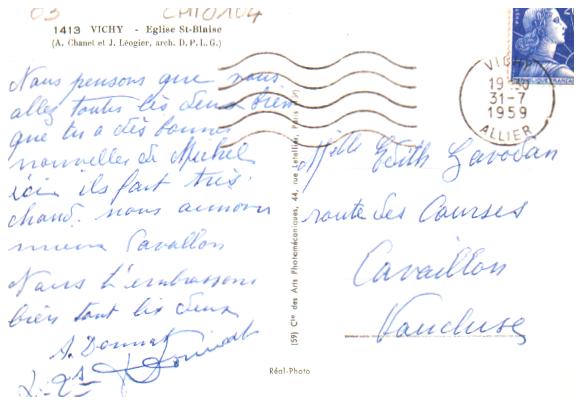 03 CM10104
1413 VICHY - Eglise St-Blaise
(A. Chanet et J. Léogier, arch. D. P. L. G.)
Nous pensons que vous
allez toutes les deux bien
que tu a dès bonne
nouvelles de Michel
ici ils fait très
chaud. nous aimons
mieux Cavaillon
Nous t'embrassons
bien tout les deux
A. Donnat
Donnat
VICHY
19 30
31-7
1959
ALLIER
Melle Edith Gavodan
route des Courses
Cavaillon
Vaucluse
(59) Cie des Arts Photomécaniques, 44, rue Letellier, Paris
Réal-Photo